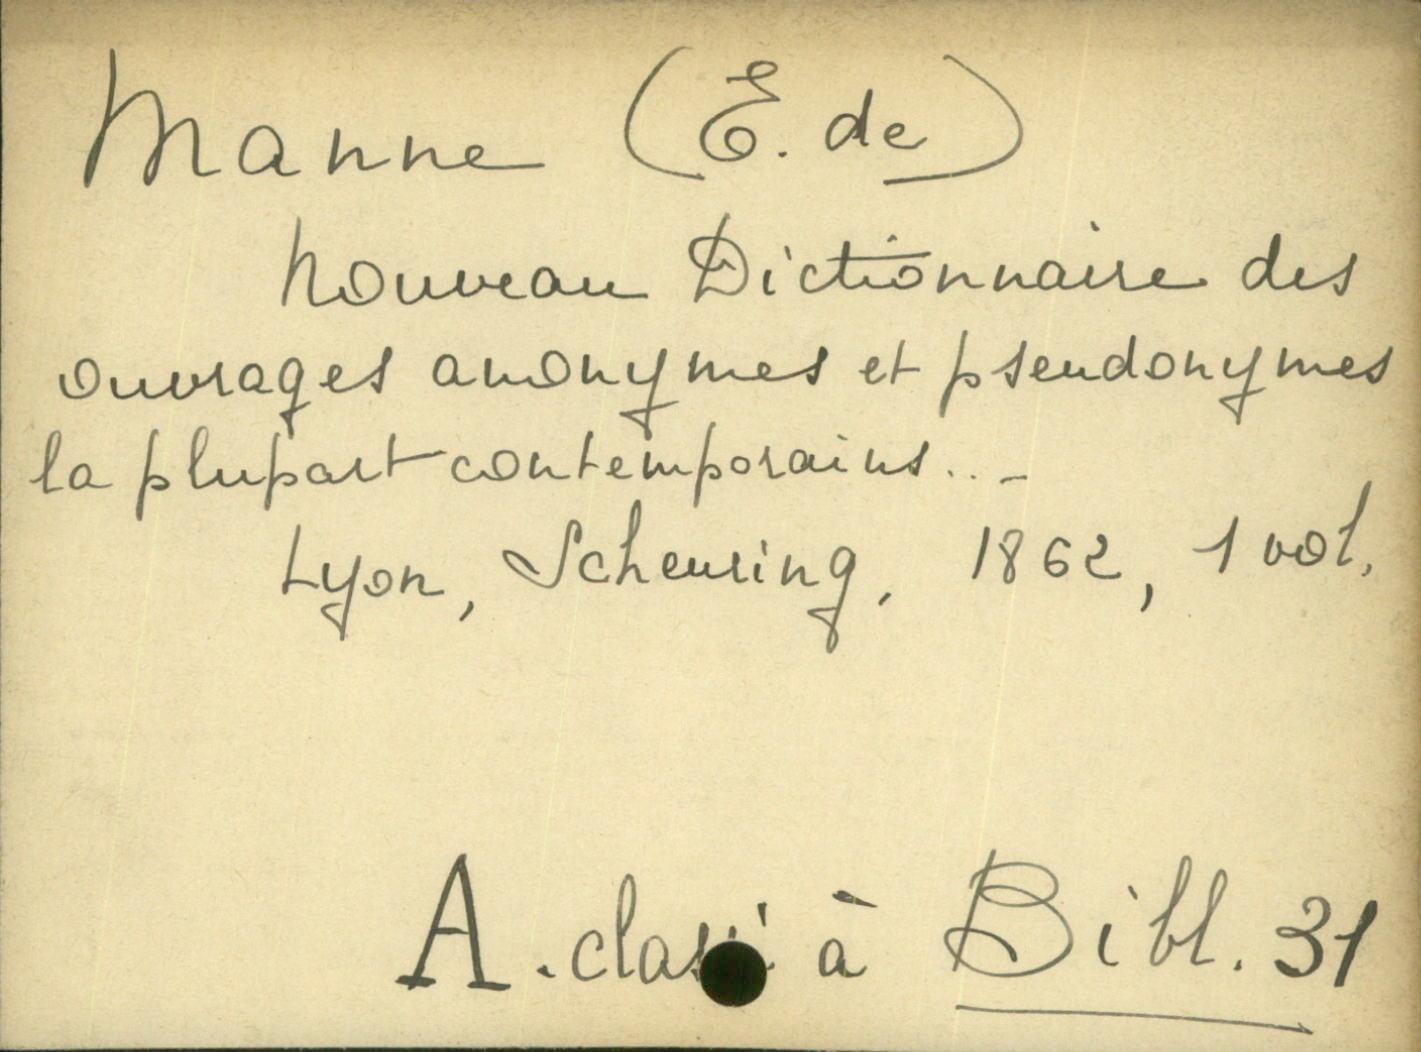 Manne (E. de)
Nouveau Dictionnaire des
ouvrages anonymes et pseudonymes
la plupart contemporains...
Lyon, Scheuring, 1862, 1 vol.
A. classé à Bibl. 31